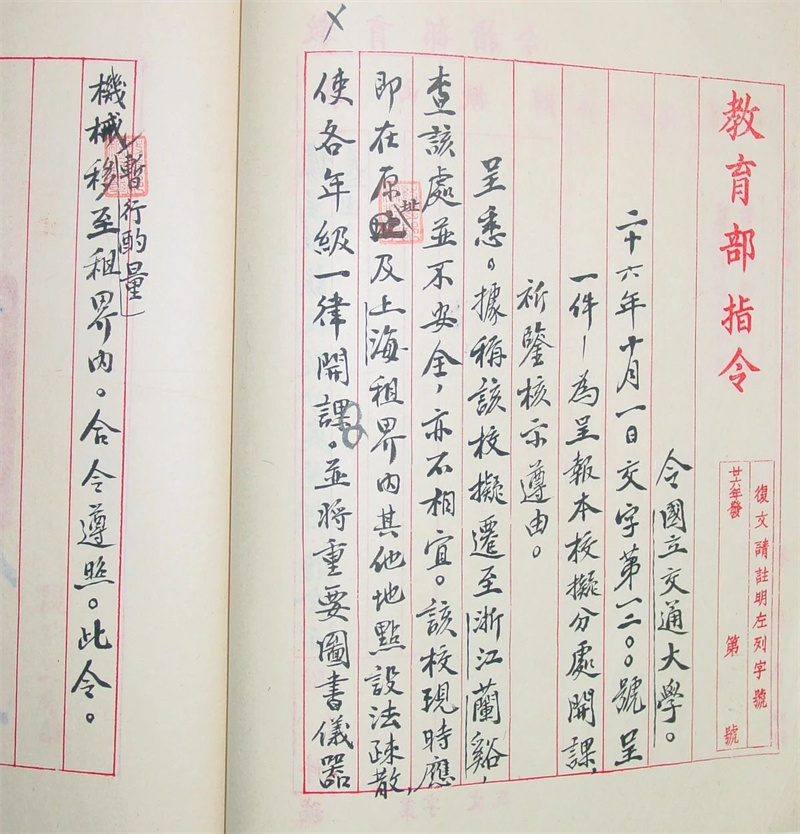 教育部指令
復文請註明左列字號
廿六年發 第 號
令國立交通大學。
二十六年十月一日文字第一二〇〇號呈
一件—為呈報本校擬分處開課，
祈鑒核示遵由。
呈悉。據稱該校擬遷至浙江蘭谿，
查該處並不安全，亦不相宜。該校現時應
即在原址及上海租界內其他地點設法疎散，
使各年級一律開課。並將重要圖書儀器
機械暫行酌量移至租界內。合令遵照。此令。